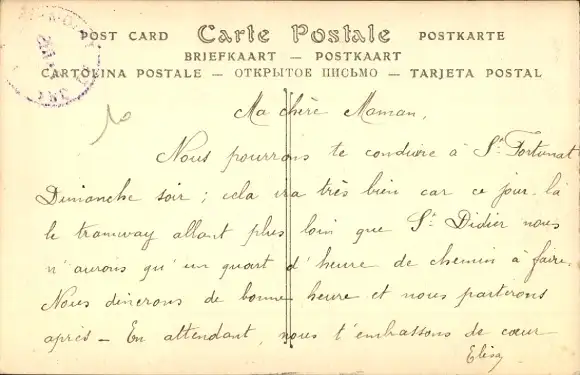 POST CARD Carte Postale POSTKARTE
BRIEFKAART — POSTKAART
CARTOLINA POSTALE — ОТКРЫТОЕ ПИСЬМО — TARJETA POSTAL
10
Ma chère Maman,
Nous pourrons te conduire à St Fortunat
Dimanche soir ; cela ira très bien car ce jour-là
le tramway allant plus loin que St Didier nous
n'aurons qu'un quart d'heure de chemin à faire.
Nous dinerons de bonne heure et nous partirons
après — En attendant, nous t'embrassons de cœur
Elisa